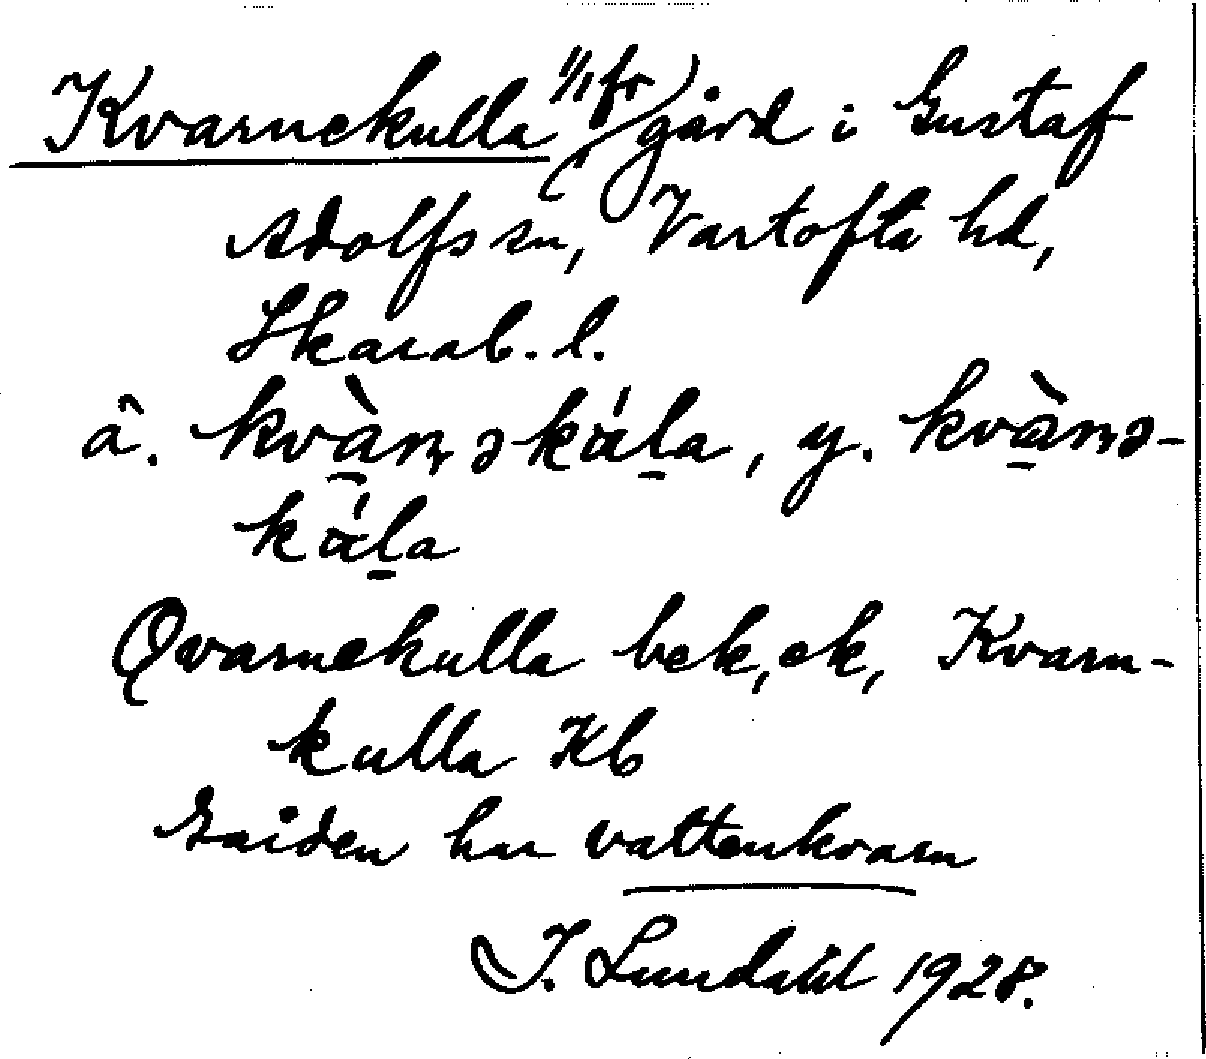 Kvarnekulla 1/1 fr) gård i Gustaf
Adolfs sn, Vartofta hd,
Skarab. l.
ä. kvà̱n̥əkάḻa, y. kvà̱nə-
kάḻa
Qvarnekulla bek, ek, Kvarn-
kulla Kb
Gården har vattenkvarn
I. Lundahl 1928.